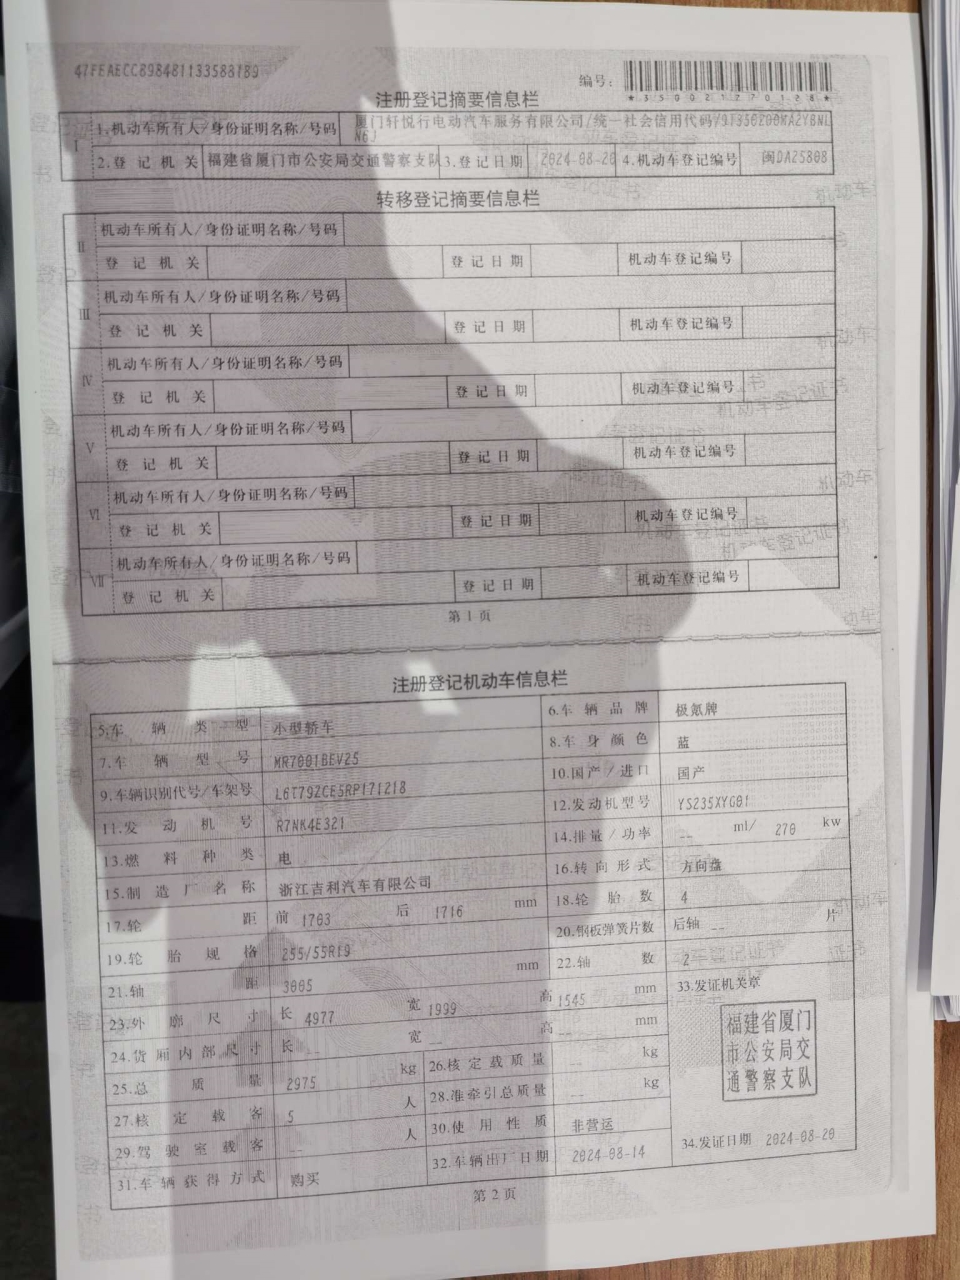 47FEAECC898481133588189
编号：
*350021270128*
注册登记摘要信息栏
I 1.机动车所有人/身份证明名称/号码 厦门轩悦行电动汽车服务有限公司/统一社会信用代码/
2.登记机关 福建省厦门市公安局交通警察支队 3.登记日期 2024-08-20 4.机动车登记编号 闽DA25808
转移登记摘要信息栏
II 机动车所有人/身份证明名称/号码
登记机关 登记日期 机动车登记编号
III 机动车所有人/身份证明名称/号码
登记机关 登记日期 机动车登记编号
IV 机动车所有人/身份证明名称/号码
登记机关 登记日期 机动车登记编号
V 机动车所有人/身份证明名称/号码
登记机关 登记日期 机动车登记编号
VI 机动车所有人/身份证明名称/号码
登记机关 登记日期 机动车登记编号
VII 机动车所有人/身份证明名称/号码
登记机关 登记日期 机动车登记编号
第1页
注册登记机动车信息栏
5.车辆类型 小型轿车 6.车辆品牌 极氪牌
7.车辆型号 MR7001BEV25 8.车身颜色 蓝
9.车辆识别代号/车架号 L6T79ZCE5RP171218 10.国产/进口 国产
11.发动机号 R7NK4E321 12.发动机型号 YS235XYG01
13.燃料种类 电 14.排量/功率 -- ml/ 270 kw
15.制造厂名称 浙江吉利汽车有限公司 16.转向形式 方向盘
17.轮距 前 1703 后 1716 mm 18.轮胎数 4
19.轮胎规格 255/55R19 20.钢板弹簧片数 后轴 -- 片
21.轴距 3005 mm 22.轴数 2
23.外廓尺寸 长 4977 宽 1999 高 1545 mm 33.发证机关章
24.货厢内部尺寸 长 -- 宽 -- 高 -- mm
25.总质量 2975 kg 26.核定载质量 -- kg
27.核定载客 5 人 28.准牵引总质量 -- kg
29.驾驶室载客 -- 人 30.使用性质 非营运
31.车辆获得方式 购买 32.车辆出厂日期 2024-08-14 34.发证日期 2024-08-20
福建省厦门
市公安局交
通警察支队
第2页